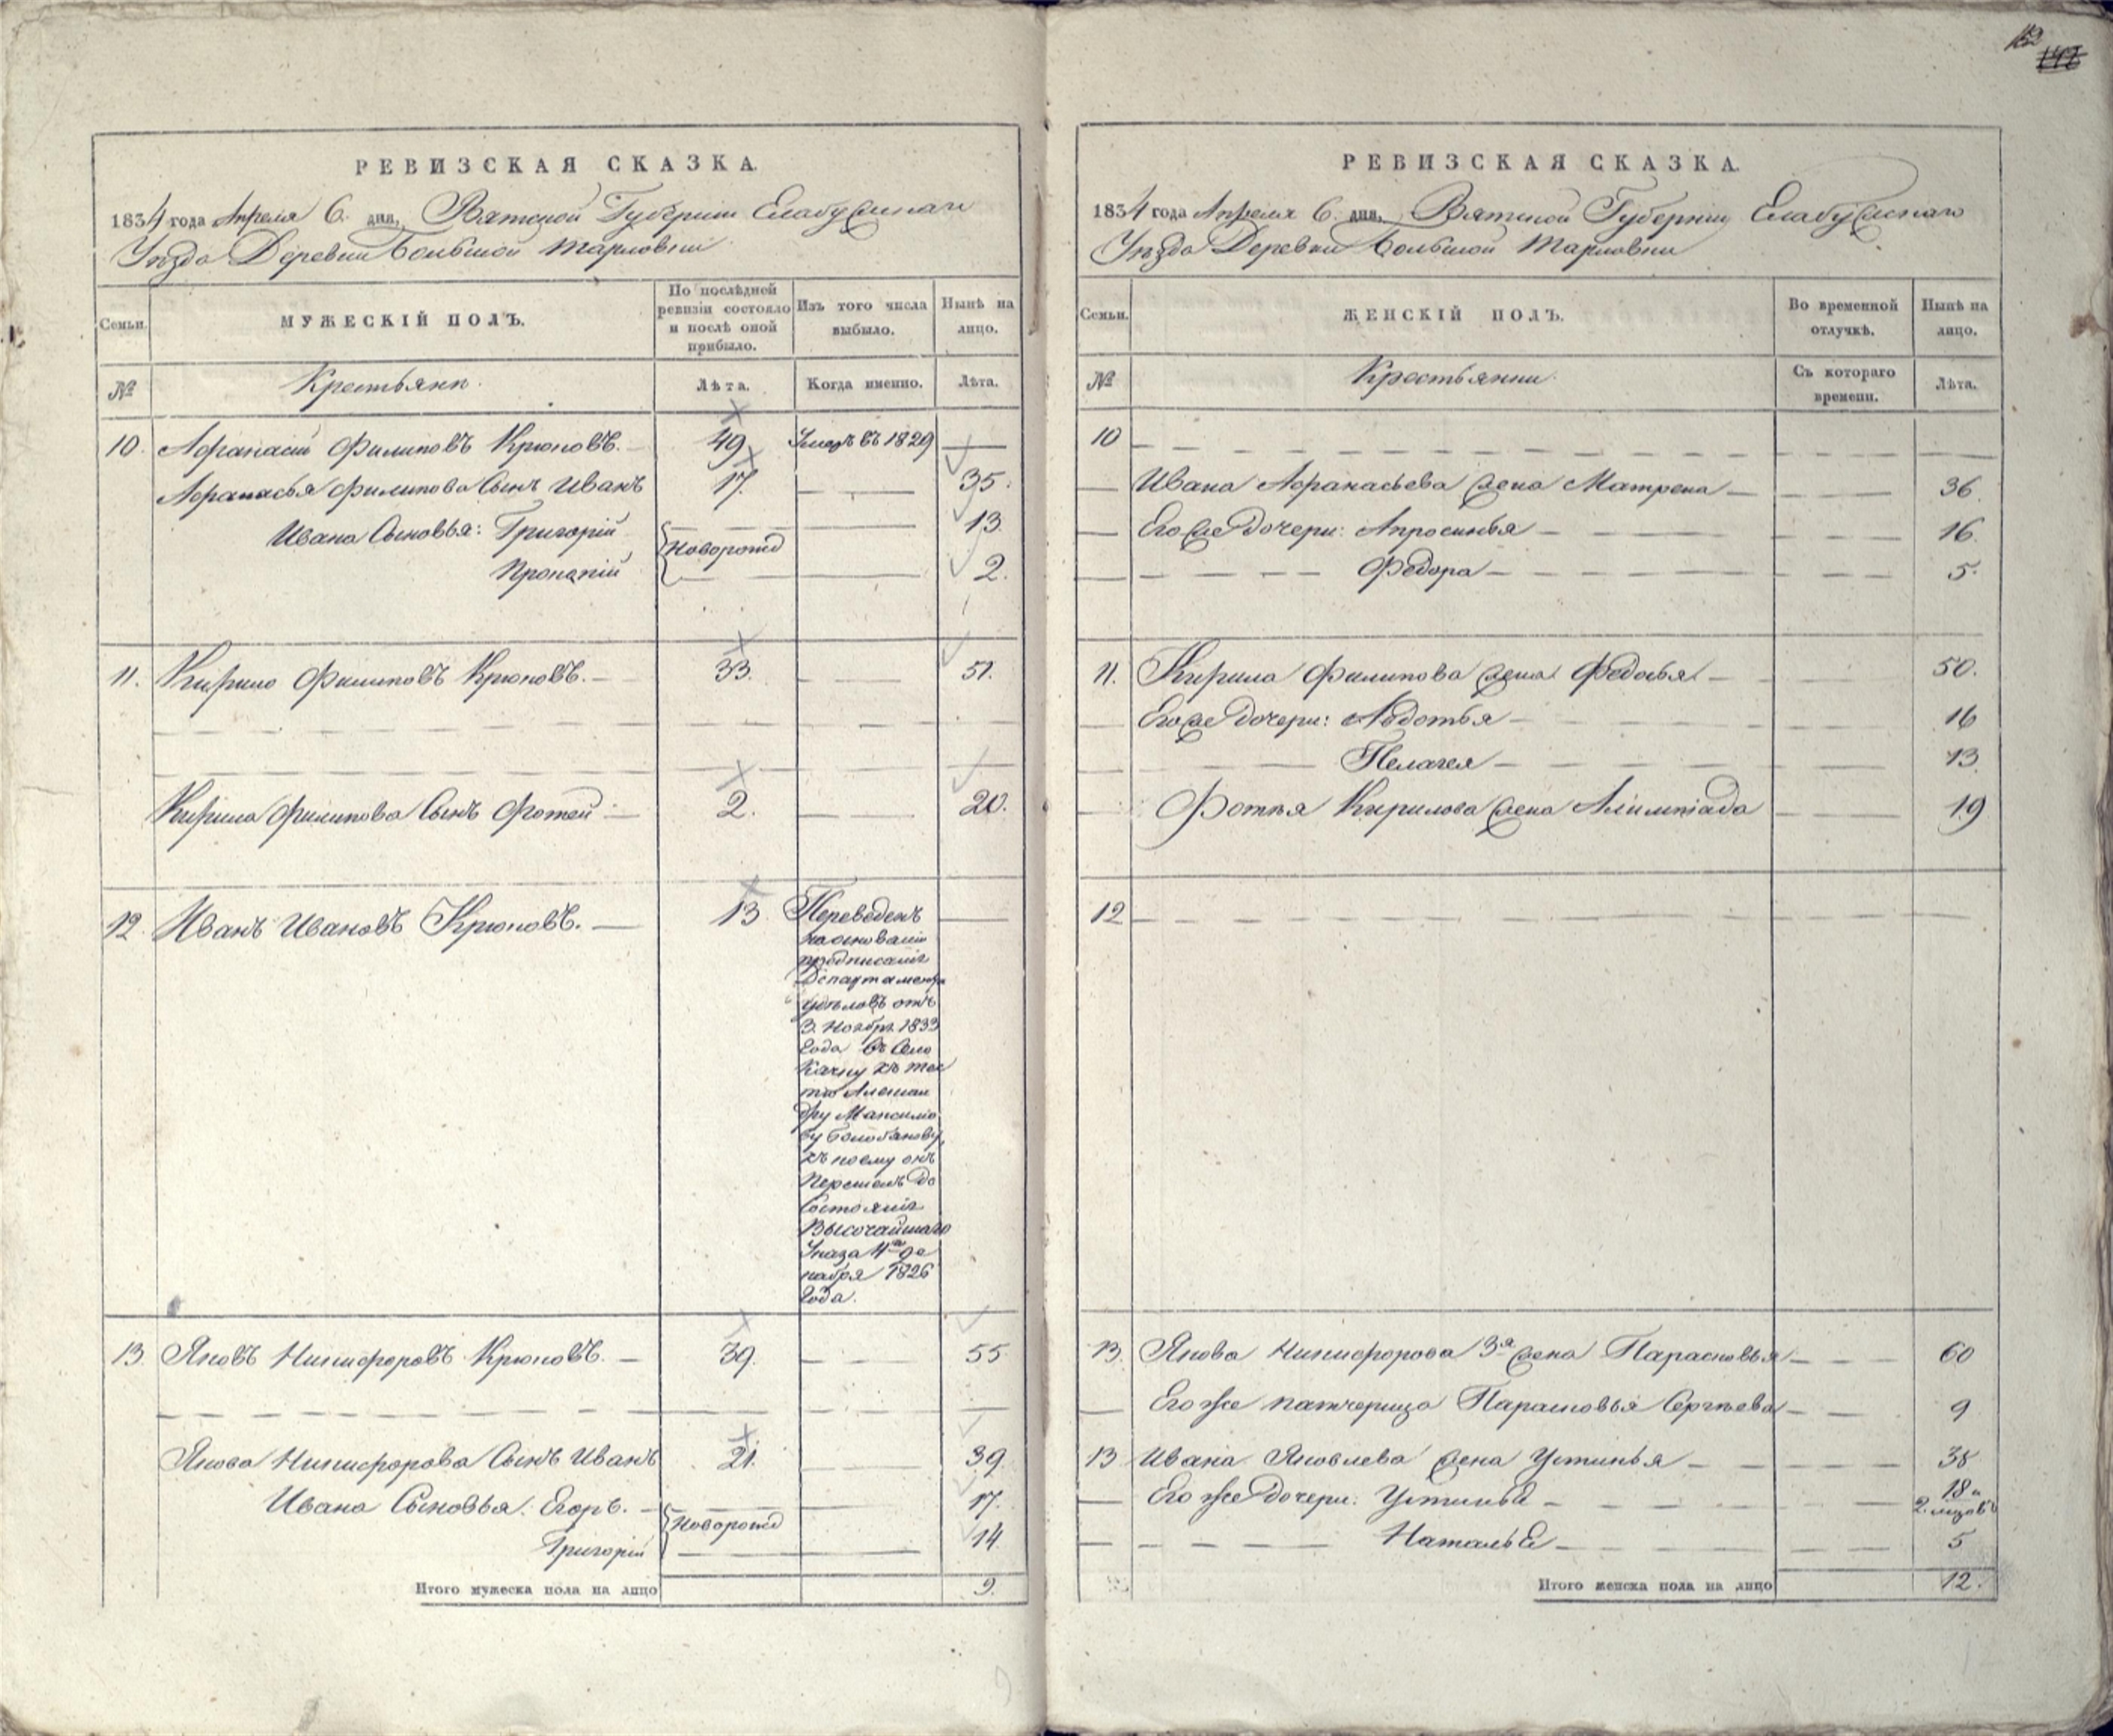 РЕВИЗСКАЯ СКАЗКА.
1834 года Апреля 6. дня, Вятской Губернии Елабужскаго
Уѣзда Деревни Большой Тарловки
Семьи. МУЖЕСКІЙ ПОЛЪ. По послѣдней ревизіи состояло и послѣ оной прибыло. Изъ того числа выбыло. Нынѣ на лицо.
№ Крестьянъ. Лѣта. Когда именно. Лѣта.
10. Афранасій Филиповъ Крюковъ. — 49 Умеръ въ 1829 —
Афранасья Филипова Сынъ Иванъ 17. — — 35.
Ивана Сыновья: Григорій — — 13.
Новорожд
Прокопій — — 2.
11. Кирило Филиповъ Крюковъ. — 33. — — 51.
Кирила Филипова Сынъ Фотей — 2. — — 20.
12. Иванъ Ивановъ Крюковъ. — 13 Переведенъ —
на основаніи
предписанія
Департамента
Удѣловъ отъ
3. Ноября 1833
Года въ Село
Качку къ тес
тю Алексан
дру Максимо
ву Болобанову,
къ коему онъ
Перешелъ до
Состоянія
Высочайшаго
Указа 11го де
кабря 1826
Года.
13. Яковъ Никифоровъ Крюковъ. — 39. — — 55
Якова Никифорова Сынъ Иванъ 21. — 39.
Ивана Сыновья: Егоръ. — — 17.
Новорожд
Григорій — — 14.
Итого мужеска пола на лицо 9.
РЕВИЗСКАЯ СКАЗКА.
1834 года Апреля 6. дня, Вятской Губерніи Елабужскаго
Уѣзда Деревни Большой Тарловки
Семьи. ЖЕНСКІЙ ПОЛЪ. Во временной отлучкѣ. Нынѣ на лицо.
№ Крестьянки. Съ котораго времени. Лѣта.
10
— Ивана Афранасьева жена Матрена — — — 36.
— Его же Дочери: Апросинья — — — 16.
— Федора — — — 5.
11. Кирила Филипова жена Федосья — — — 50.
— Его же Дочери: Авдотья — — — 16
— Пелагея — — — 13.
— Фотея Кирилова жена Алимпіада — — 19
12
13. Якова Никифорова 3я жена Парасковья — — 60
— Его же падчерица Парасковья Сергѣева — — 9
13 Ивана Яковлева жена Устинья — — — 38
— Его же Дочери: Устинья — — — 18 и
2. мѣсяцовъ
— Наталья — — — 5
Итого женска пола на лицо 12.